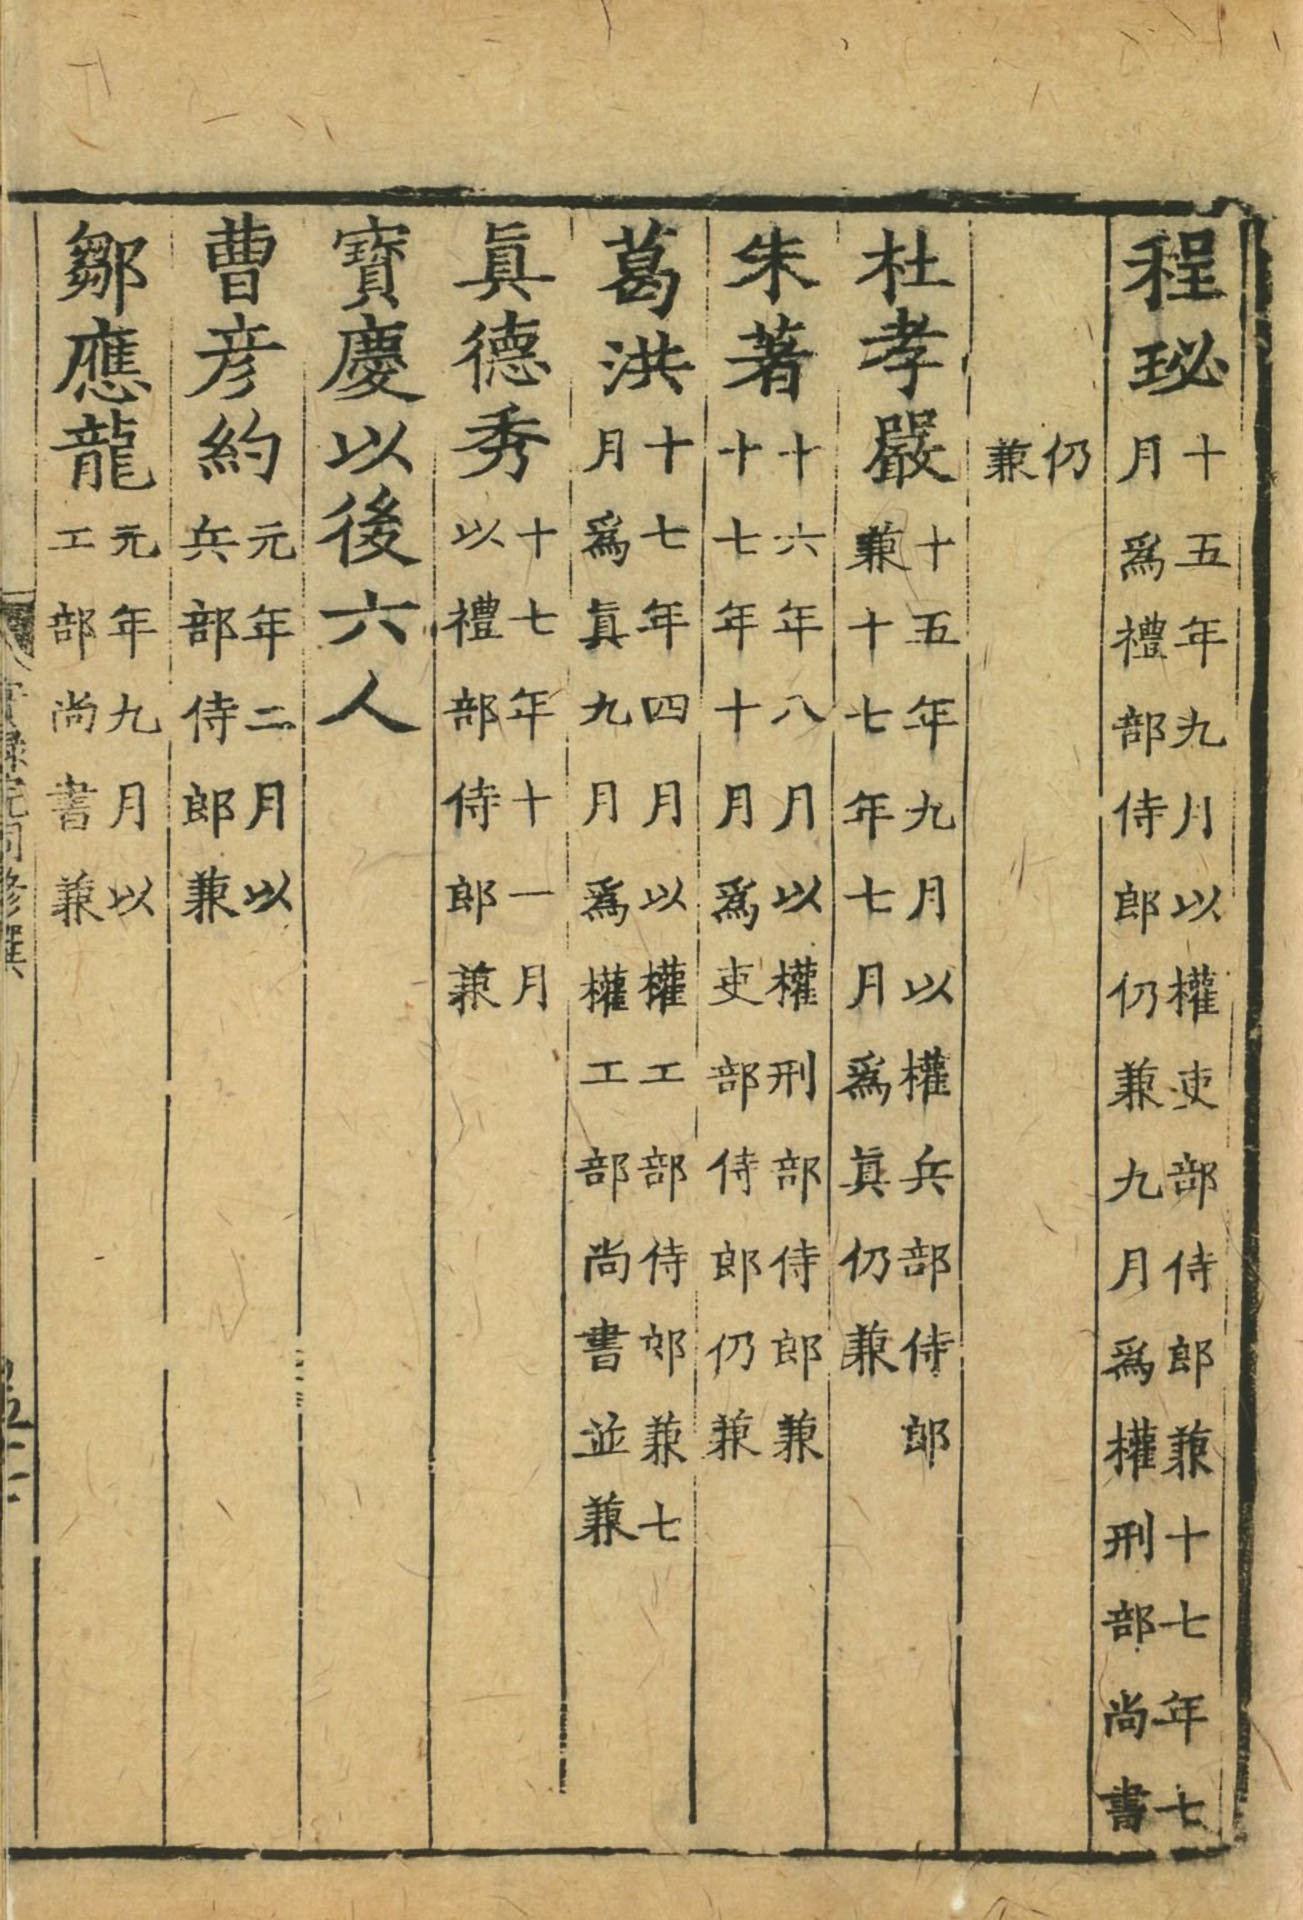 程珌十五年九月以權吏部侍郎兼十七年七月爲禮部侍郎仍兼九月爲權刑部尚書
仍兼
杜孝嚴十五年九月以權兵部侍郎兼十七年七月爲眞仍兼
朱著十六年八月以權刑部侍郎兼十七年十月爲吏部侍郎仍兼
葛洪十七年四月以權工部侍郎兼七月爲眞九月爲權工部尚書並兼
眞德秀十七年十一月以禮部侍郎兼
寳慶以後六人
曹彦約元年二月以兵部侍郎兼
鄒應龍元年九月以工部尚書兼
實録院同修撰